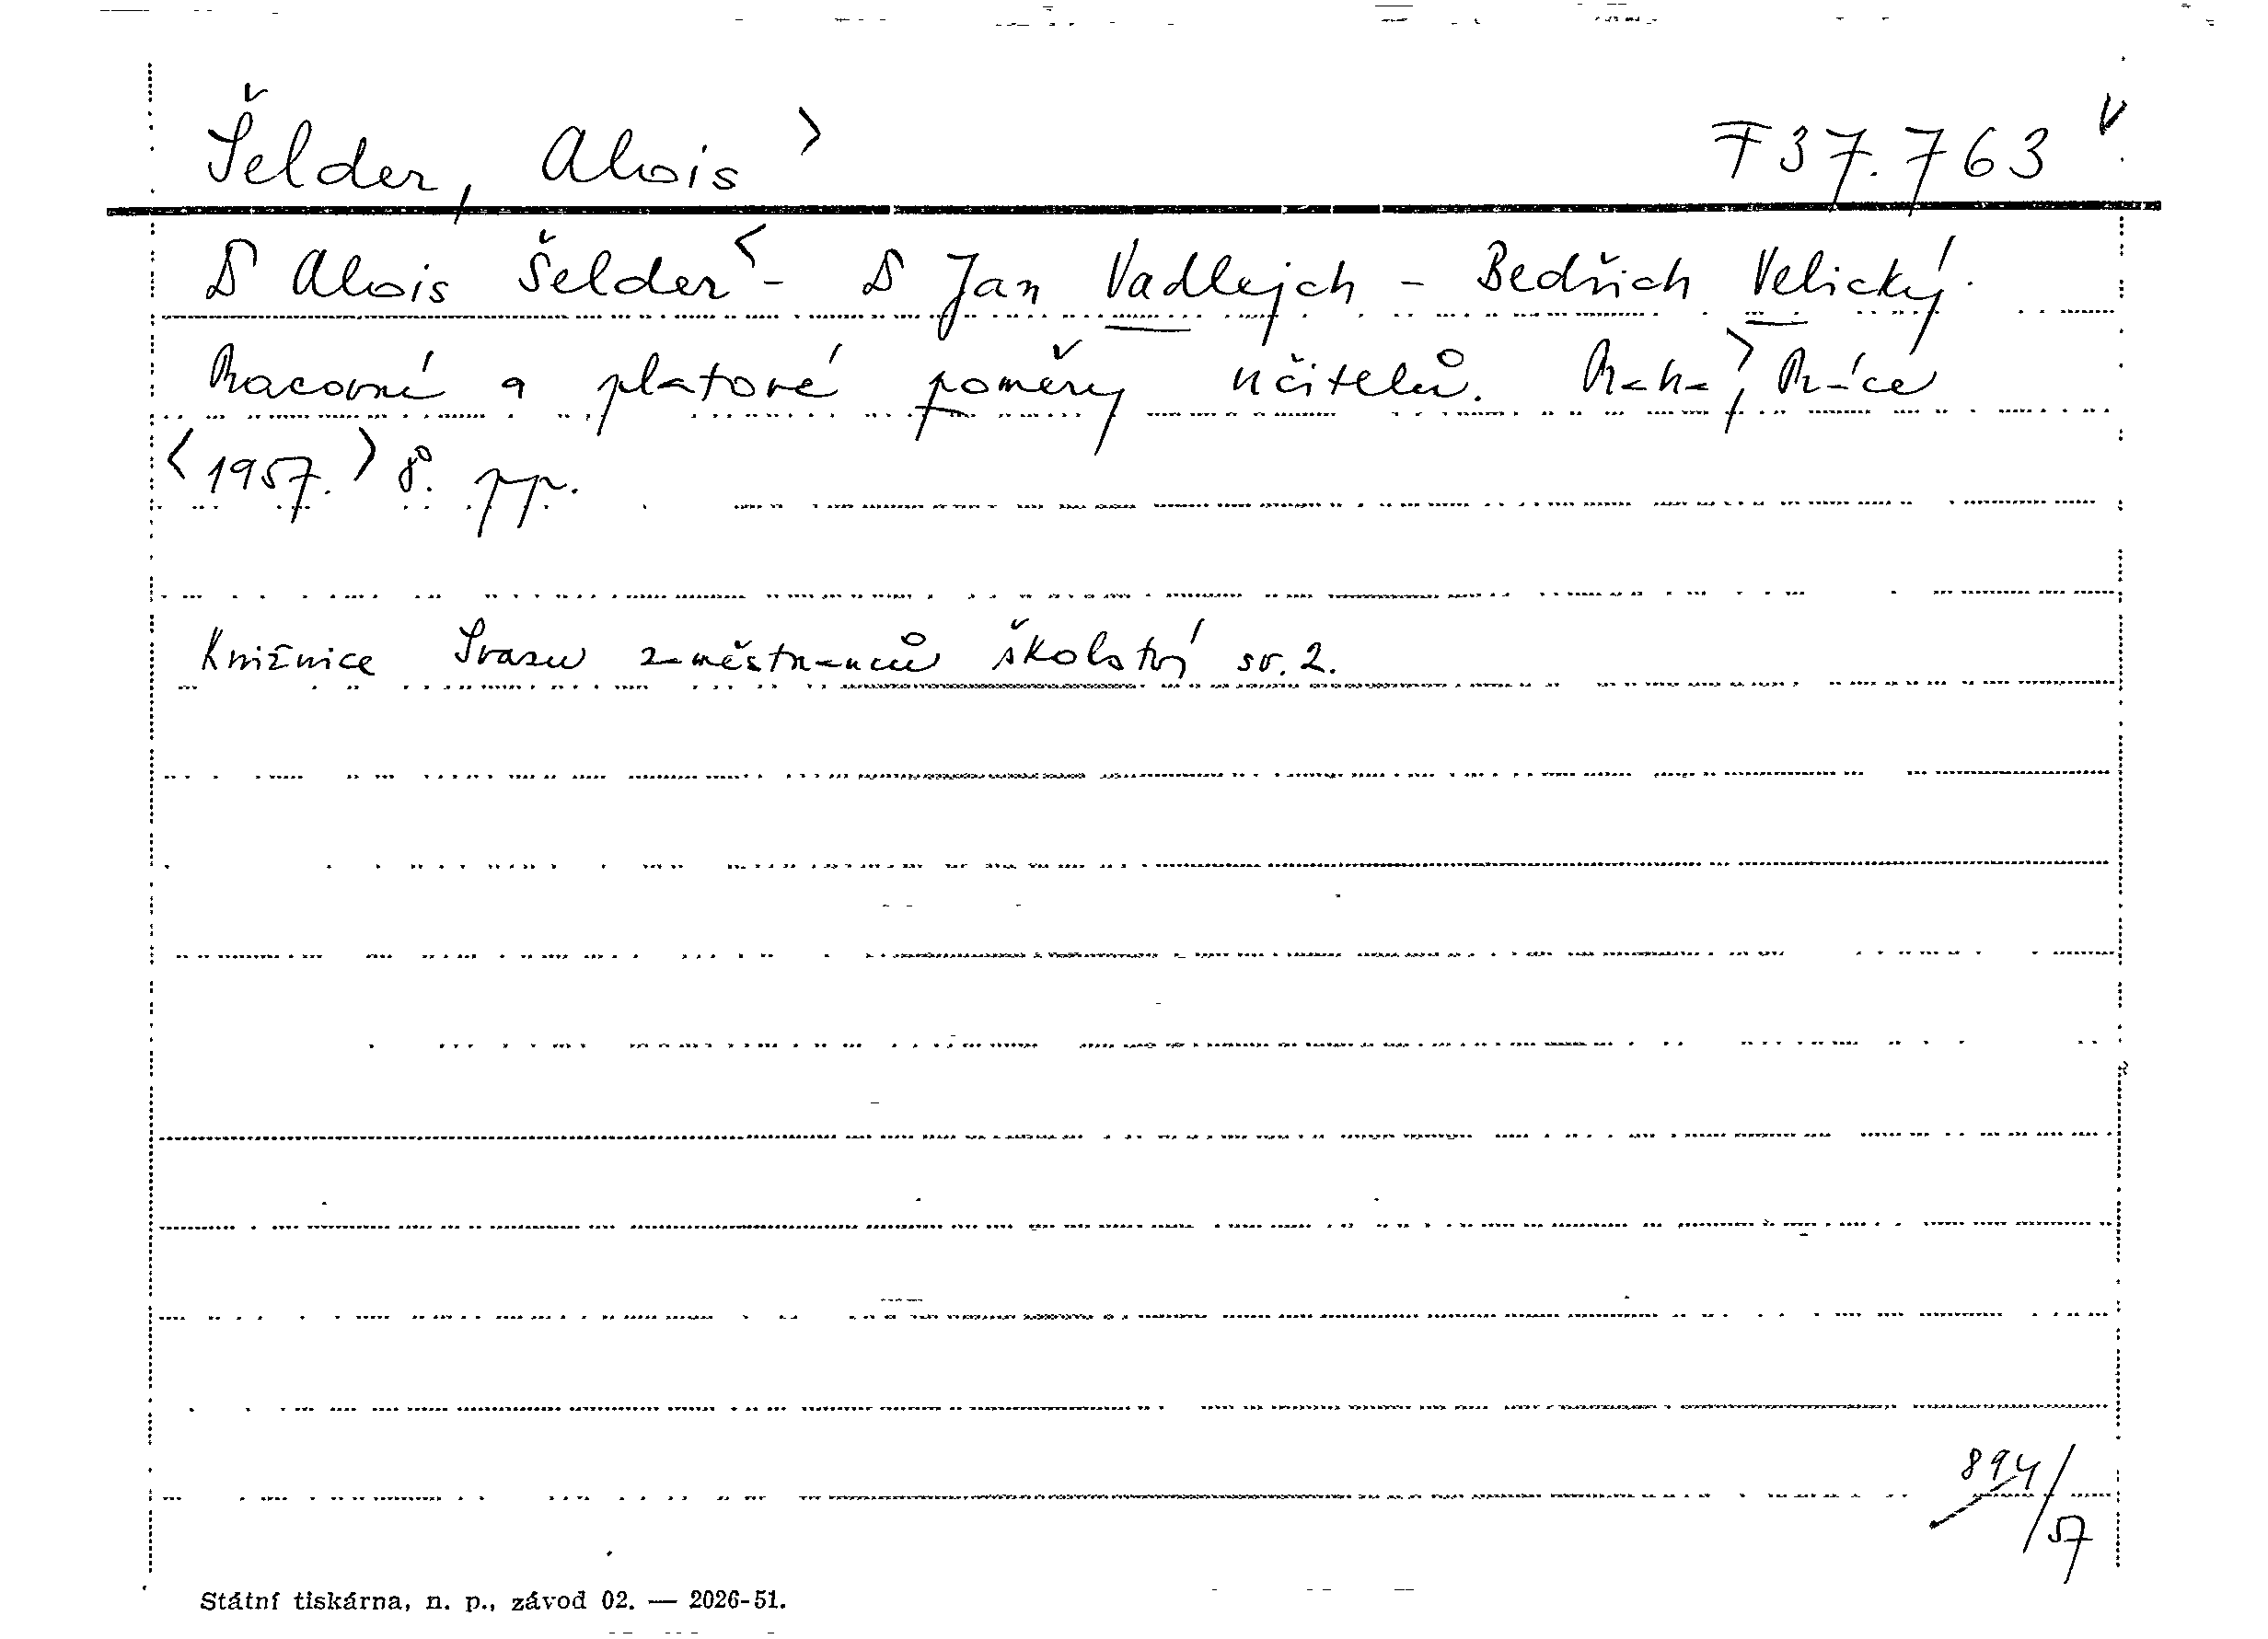 Šelder, Alois > F 37.763 v
D Alois Šelder < - D Jan Vadlejch - Bedřich Velický.
Pracovní a platové poměry učitelů. Praha >, Práce
< 1957. > 8°. pp.
Knižnice Svazu zaměstnanců školství sv. 2.
894/57
Státní tiskárna, n. p., závod 02. — 2026-51.